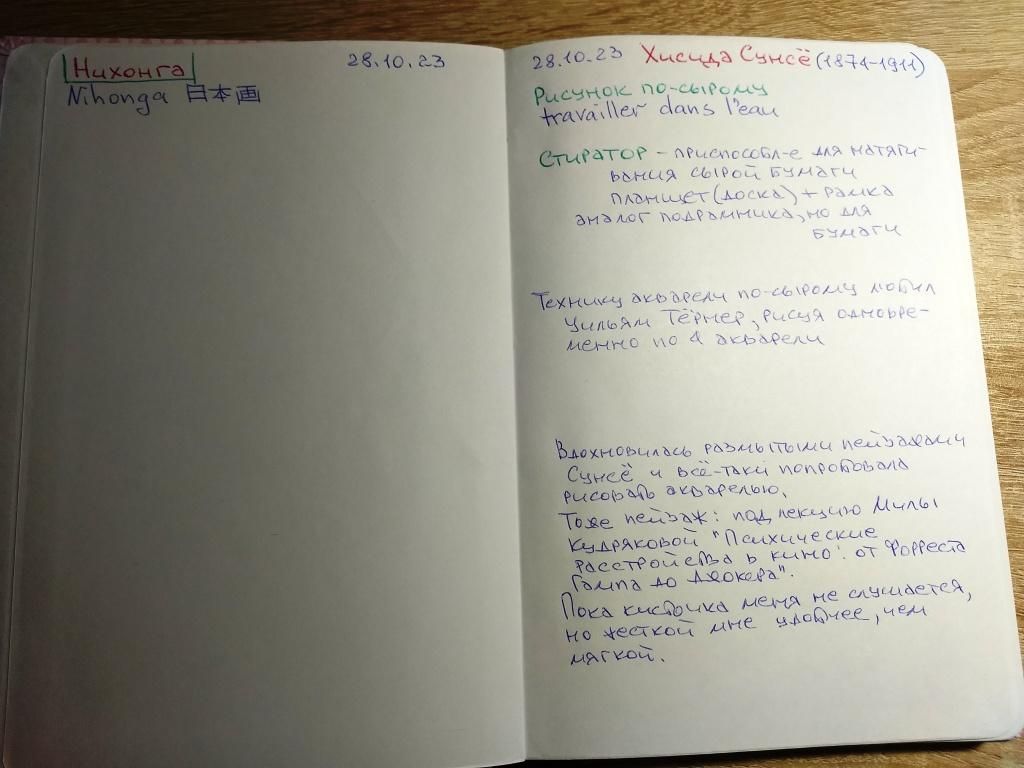 Нихонга
28.10.23
Nihonga 日本画
28.10.23 Хисида Сунсё (1874-1911)
Рисунок по-сырому
travailler dans l'eau
Стиратор - приспособл-е для натяги-
вания сырой бумаги
планшет (доска) + рамка
аналог подрамника, но для
бумаги
Технику акварели по-сырому любил
Уильям Тёрнер, рисуя одновре-
менно по 4 акварели
Вдохновилась размытыми пейзажами
Сунсё и всё-таки попробовала
рисовать акварелью.
Тоже пейзаж: под лекцию Милы
Кудряковой "Психические
расстройства в кино: от Форреста
Гампа до Джокера".
Пока кисточка меня не слушается,
но жесткой мне удобнее, чем
мягкой.